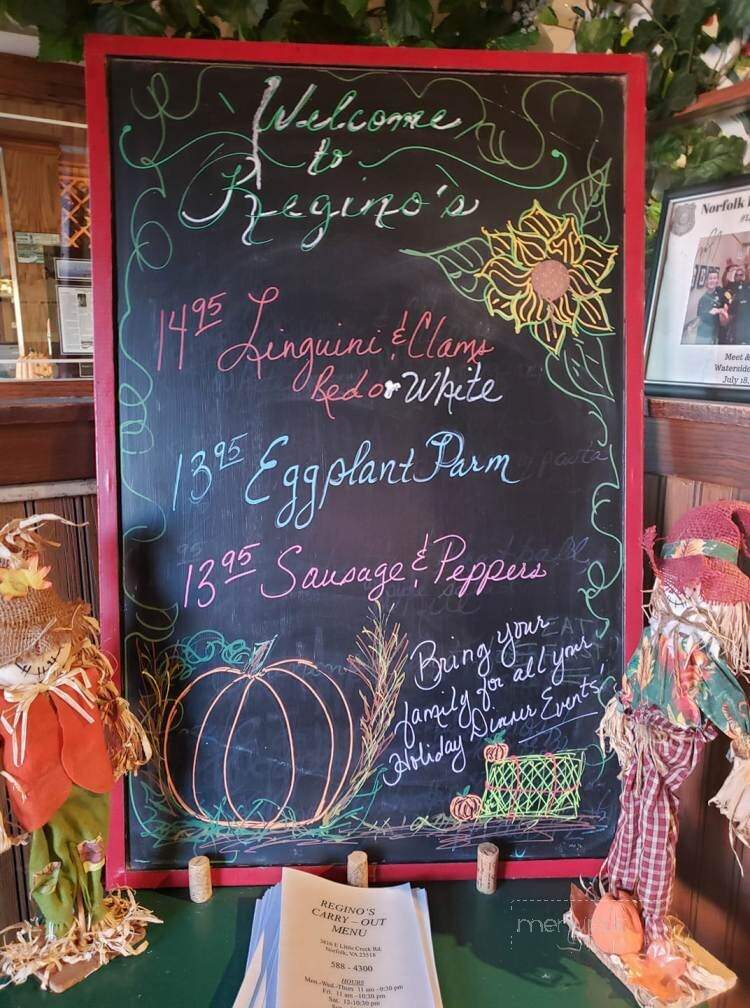 Welcome
to
Regino's
14 95 Linguini & Clams
Red or White
13 95 Eggplant Parm
13 95 Sausage & Peppers
Bring your
family for all your
Holiday Dinner Events!
Norfolk
Meet &
Waterside
July 18,
REGINO'S
CARRY-OUT
MENU
3816 E Little Creek Rd.
Norfolk, VA 23518
588-4300
HOURS
Mon.-Wed.-Thurs 11 am-9:30 pm
Fri. 11 am-10:30 pm
Sat. 12-10:30 pm